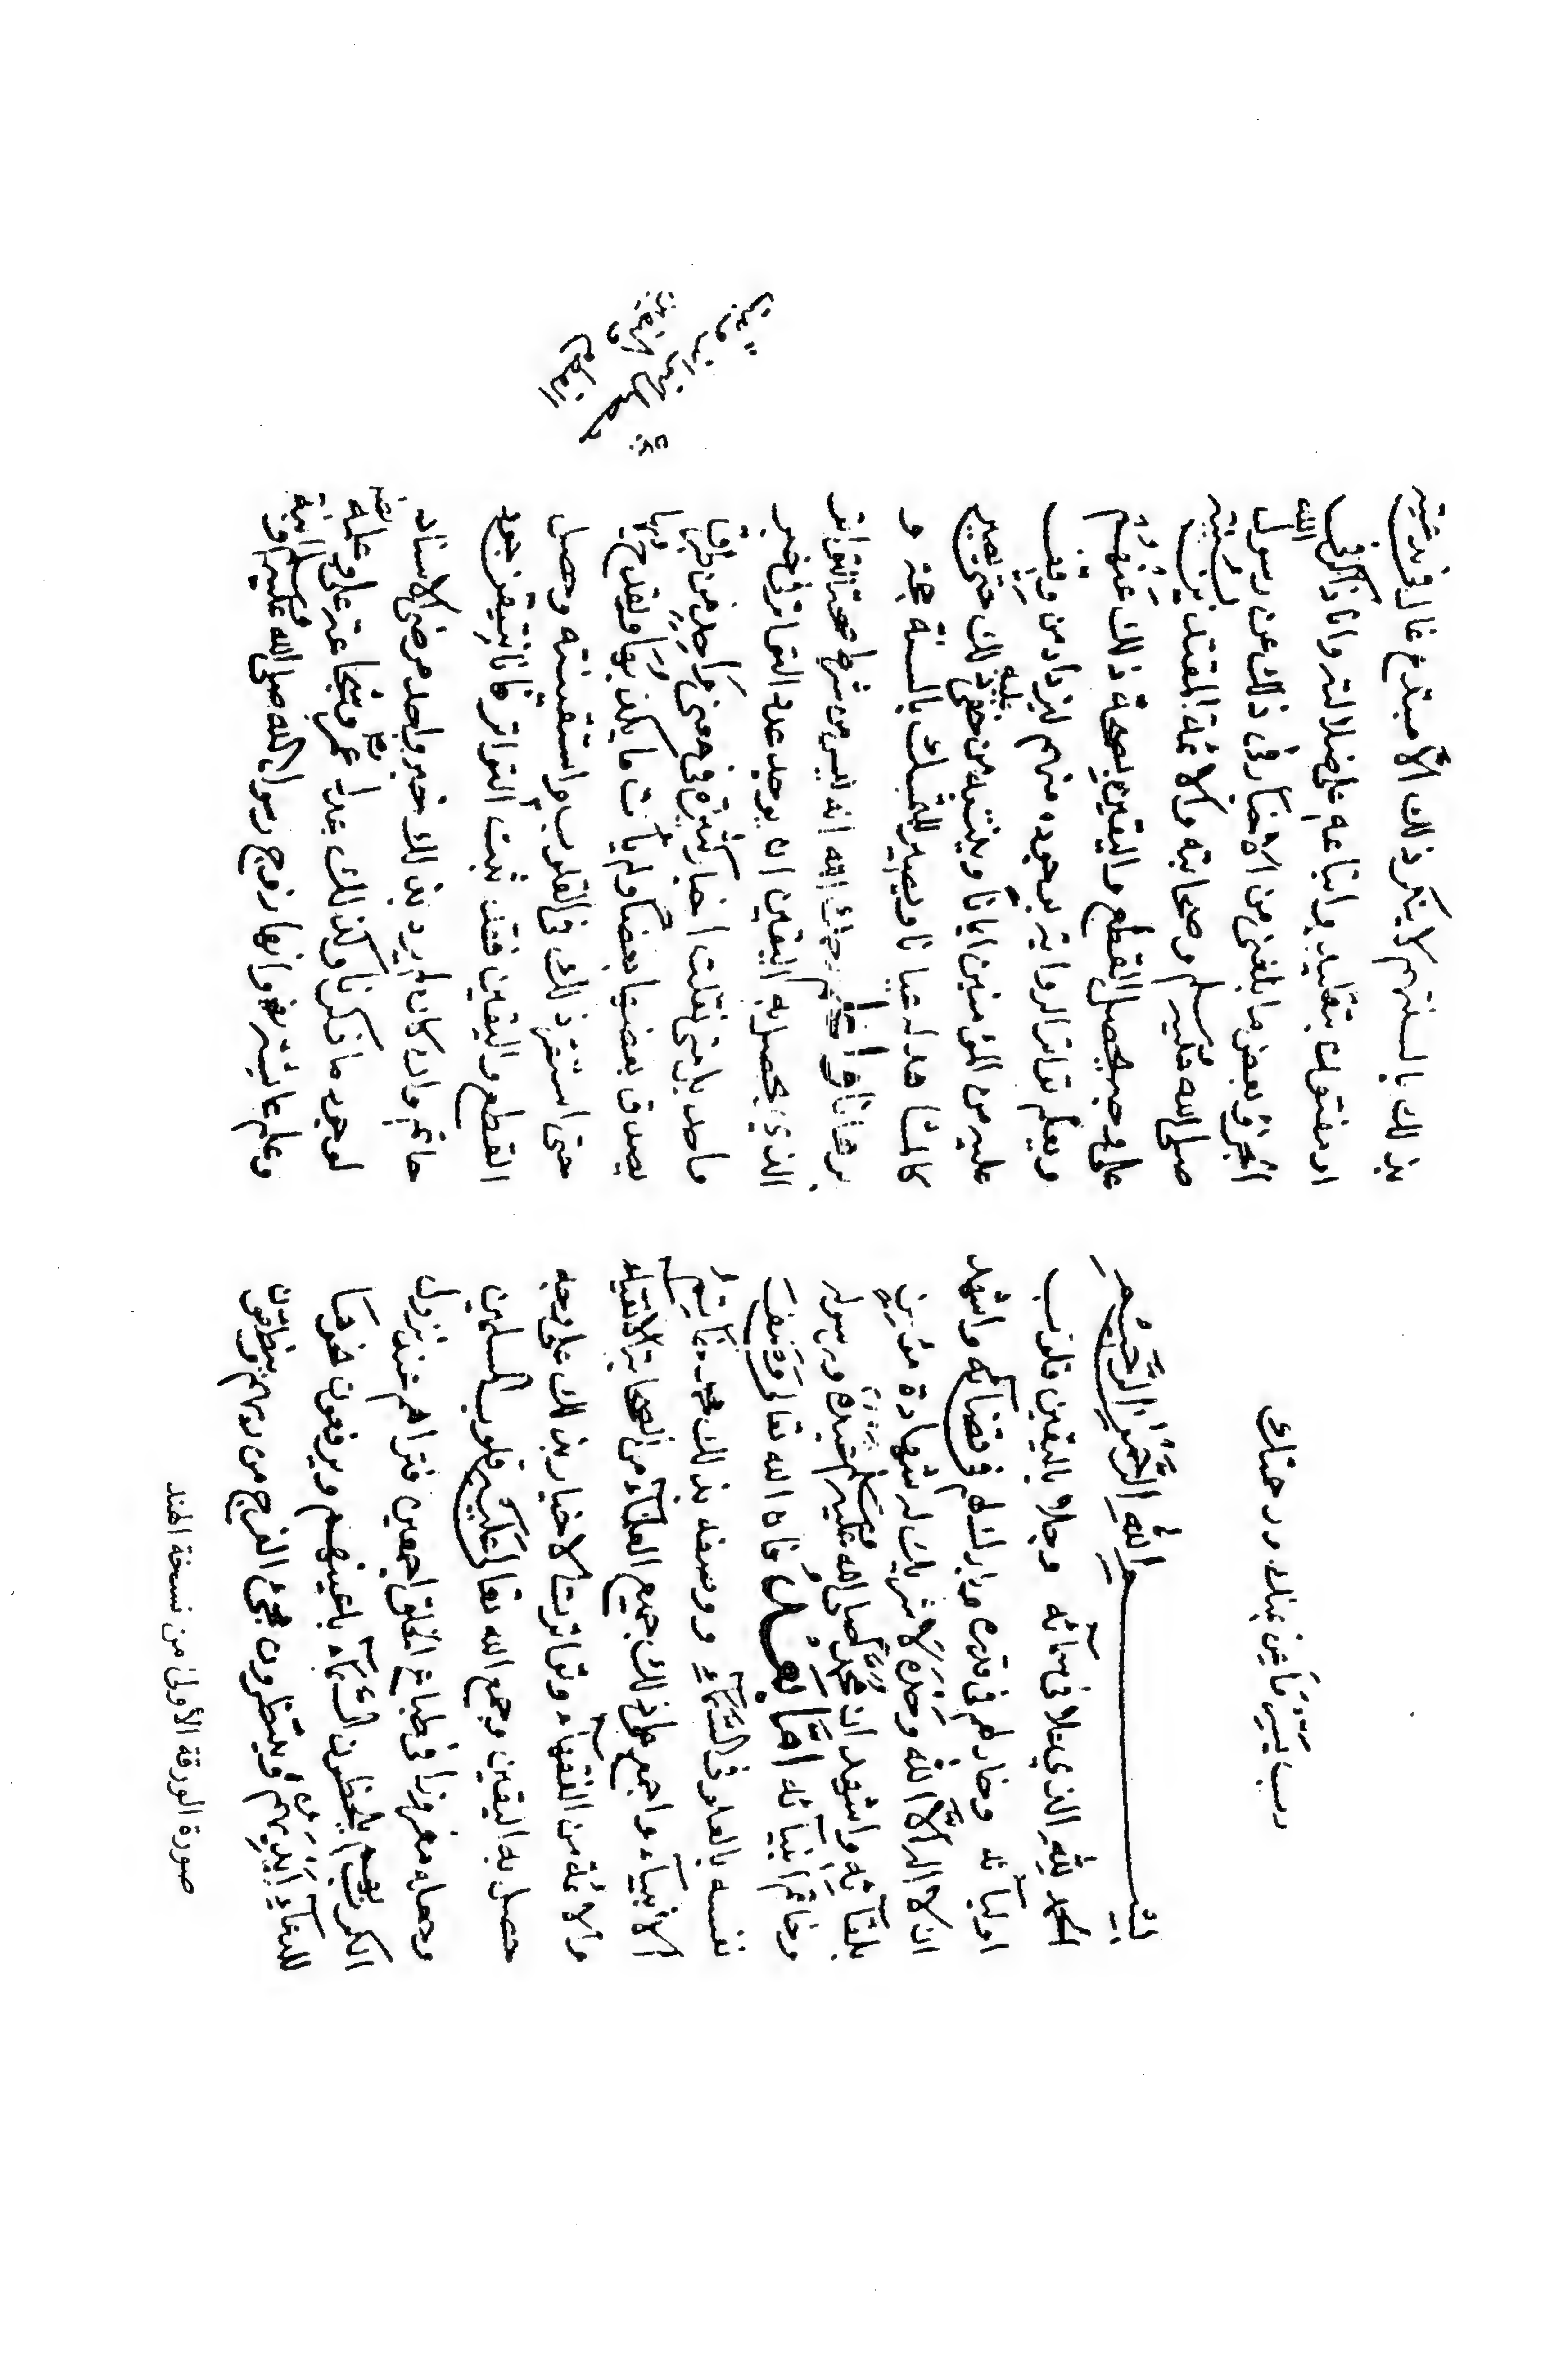 رب يسر بمنك ورحمتك
بسم الله الرحمن الرحيم
الحمد لله الذي علا في سمآئه وجلا باليقين قلوب
اوليآئه وخار لهم في قدره وبارك لهم في قضآئه واشهد
ان لا اله الا الله وحده لا شريك له شهادة مؤمن
بلقآئه واشهد ان محمدا صلى الله عليه وسلم عبده ورسوله
وخاتم انبيآئه اما بعد فان الله تعالى وصف
نفسه بالعلو في السمآء ووصفه بذلك محمد خاتم
الانبيآء واجمع على ذلك جميع العلمآء من الصحابة الاتقياء
والائمة من الفقهآء وتواترت الاخبار بذلك على وجه
حصل به اليقين وجمع الله تعالى عليه قلوب المسلمين
وجعله مغروزا في طبايع الخلق اجمعين فتراهم عند نزول
الكرب بهم يلحظون السمآء باعينهم ويرفعون نحوها
للدعآء ايديهم وينتظرون مجئ الفرج من ربهم وينطقون
بذلك بالسنتهم لا ينكر ذلك الا مبتدع غال في بدعته
او مفتون بتقليده واتباعه على ضلالته وانا ذاكر في
الجزء بعض ما بلغني من الاخبار في ذلك عن رسول الله
صلى الله عليه وسلم وصحابته والائمة المقتدين بسنته
على وجه يحصل القطع واليقين بصحة ذلك عنهم
ويعلم تواتر الرواية بوجوده منهم ليزداد من وقف
عليه من المؤمنين ايمانا وينتبه من خفي عليه ذلك حتى يصير
كالمشاهد له عيانا ويصير للمتمسك بالسنة حجة و
برهانا واعلم رحمك الله انه ليس من شرط صحة التواتر
الذي يحصل به اليقين ان يوجد عدد التواتر في خبر
واحد بل متى نقلت اخبار كثيرة في معنى واحد من طرق
يصدق بعضها بعضا ولم يأت ما يكذبها او يقدح فيها
حتى استقر ذلك في القلوب واستيقنته وحصل
القطع واليقين فقد ثبت التواتر فاننا نتيقن جود
حاتم وان كان لم يرد بذلك خبر واحد مرضي الاسناد
لوجود ما ذكرنا وكذلك عدل عمر وشجاعة علي وعلمه
وعلم عايشة وانها زوج رسول الله صلى الله عليه وسلم وابنة
صورة الورقة الأولى من نسخة الهند